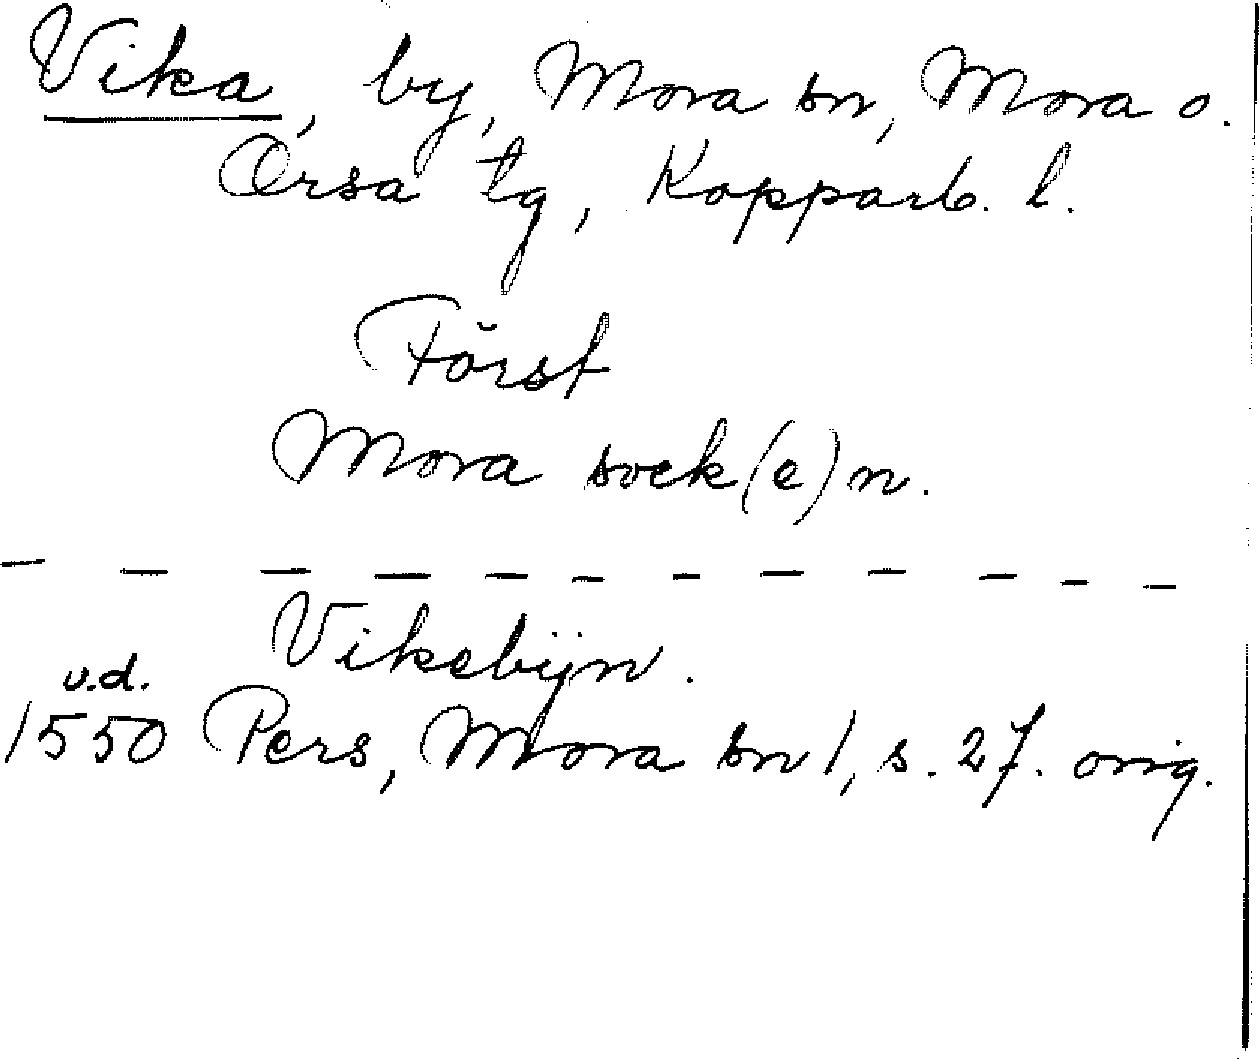 Vika, by, Mora sn, Mora o.
Orsa tg, Kopparb. l.
Först
Mora sock(e)n.
— — — — — — — — — — — —
Vikebÿn.
u.d.
1550 Pers, Mora sn 1, s. 27. orig.